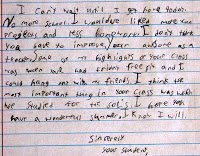 I can't wait until I get home today.
No more school. I would've liked more
progress and less homework. I don't think
you have to improve your awsome as a
teacher, one of my highlights of your class
was when we had friday free fit and I
could just sit with my friends. I think the
most important thing in your class was when
we studied for the sol's. I hope you
have a wonderous summer. I know I will.
Sincerely
your student,